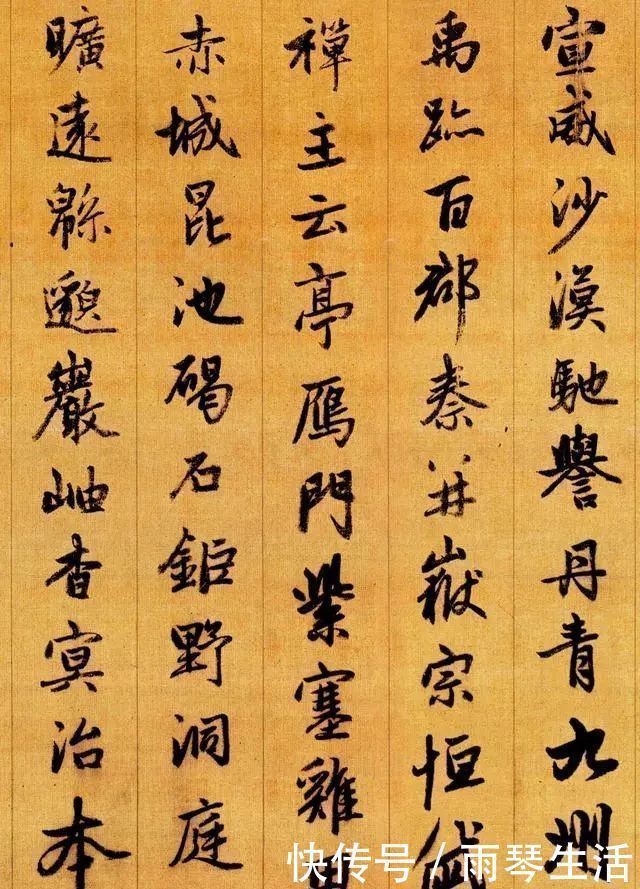 宣威沙漠馳譽丹青九州
禹跡百郡秦并嶽宗恒岱
禪主云亭鴈門紫塞雞田
赤城昆池碣石鉅野洞庭
曠遠緜邈巖岫杳冥治本
快传号 / 雨琴生活